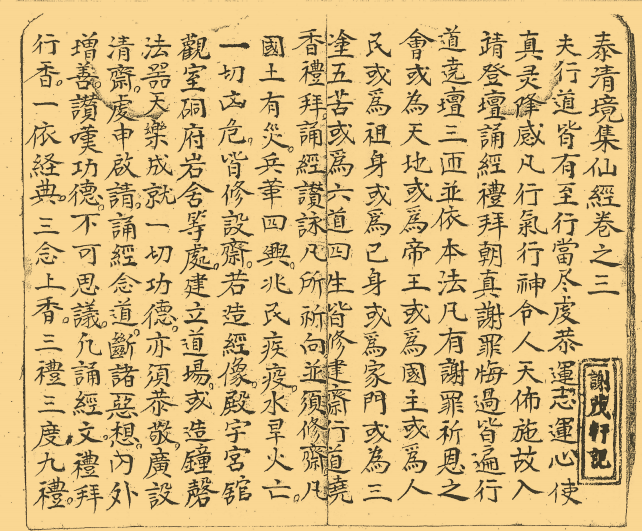 泰清境集仙經卷之三
夫行道皆有至行當尽虔恭運志運心使
真灵降感凡行氣行神令人天佈施故入
靖登壇誦經禮拜朝真謝罪悔過皆遍行
道遶壇三匝並依本法凡有謝罪祈恩之
會或為天地或為帝王或為國主或為人
民或為祖身或為己身或為家門或為三
塗五苦或為六道四生皆修建齋行道遶
香禮拜誦經讃詠凡所祈向並須修齋凡
國土有災兵革四興兆民疾疫水旱火亡
一切凶危皆修設齋若造經像殿宇宮舘
觀室硐府岩舍等處建立道場或造鐘磬
法器天樂成就一切功德亦須恭敬廣設
清齋處申啟請誦經念道斷諸惡想內外
增善讃嘆功德不可思議凡誦經文禮拜
行香一依経典三念上香三禮三度九禮
謝茂軒記